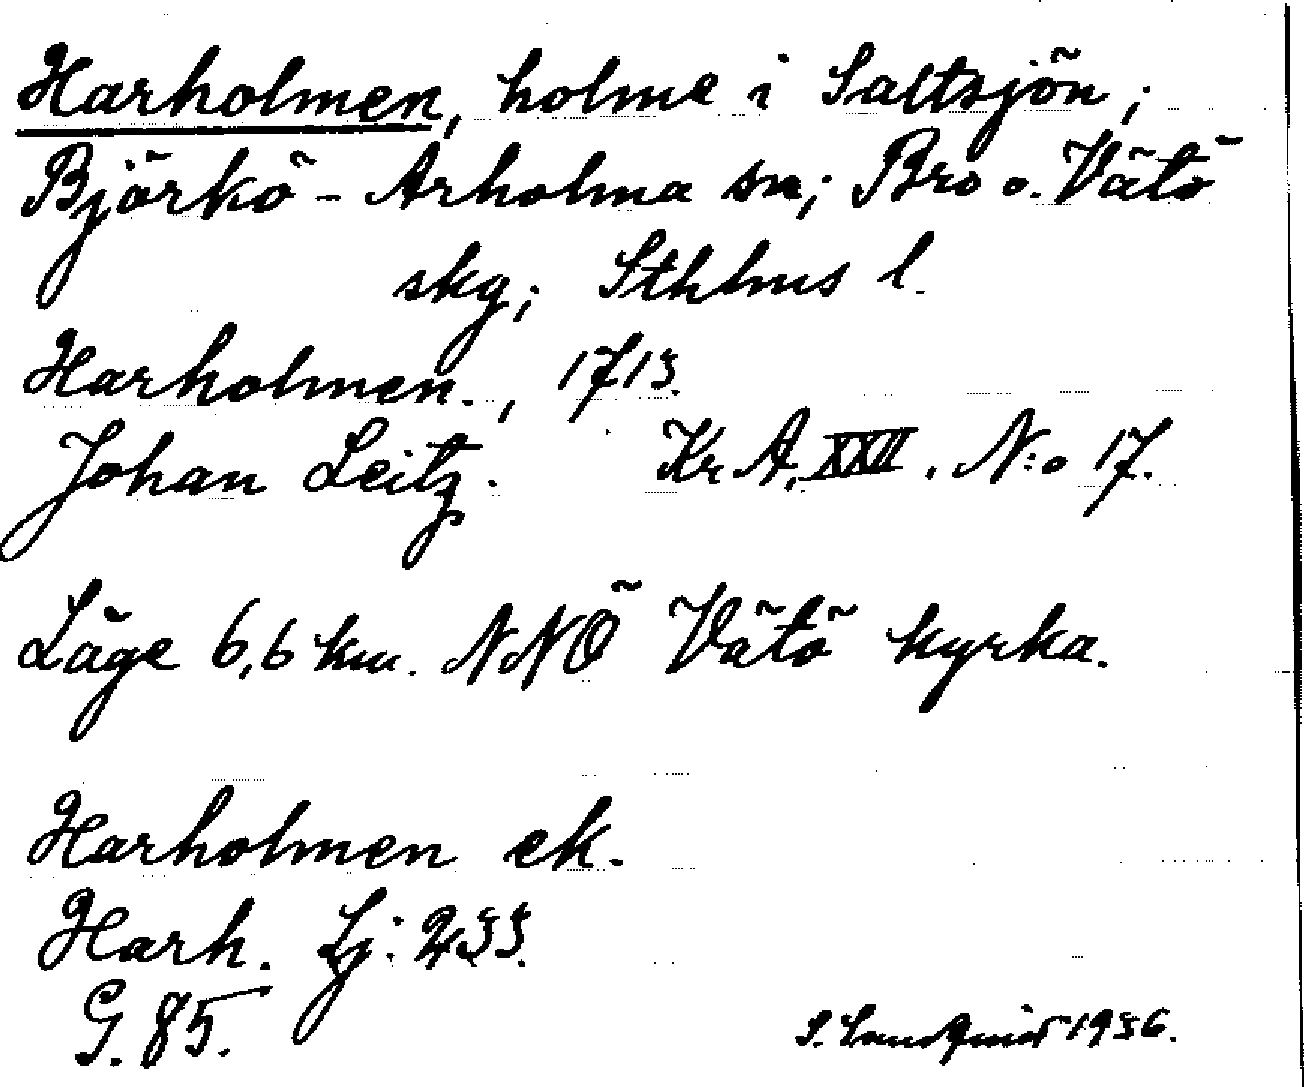 Harholmen, holme i Saltsjön;
Björkö - Arholma sn; Bro o. Vätö
skg; Sthlms l.
Harholmen., 1713.
Johan Leitz. Kr. A. XXII. N:o 17.
Läge 6,6 km. NNÖ Vätö kyrka.
Harholmen ek.
Harh. Lj: 233.
G. 85.
S. 1936.